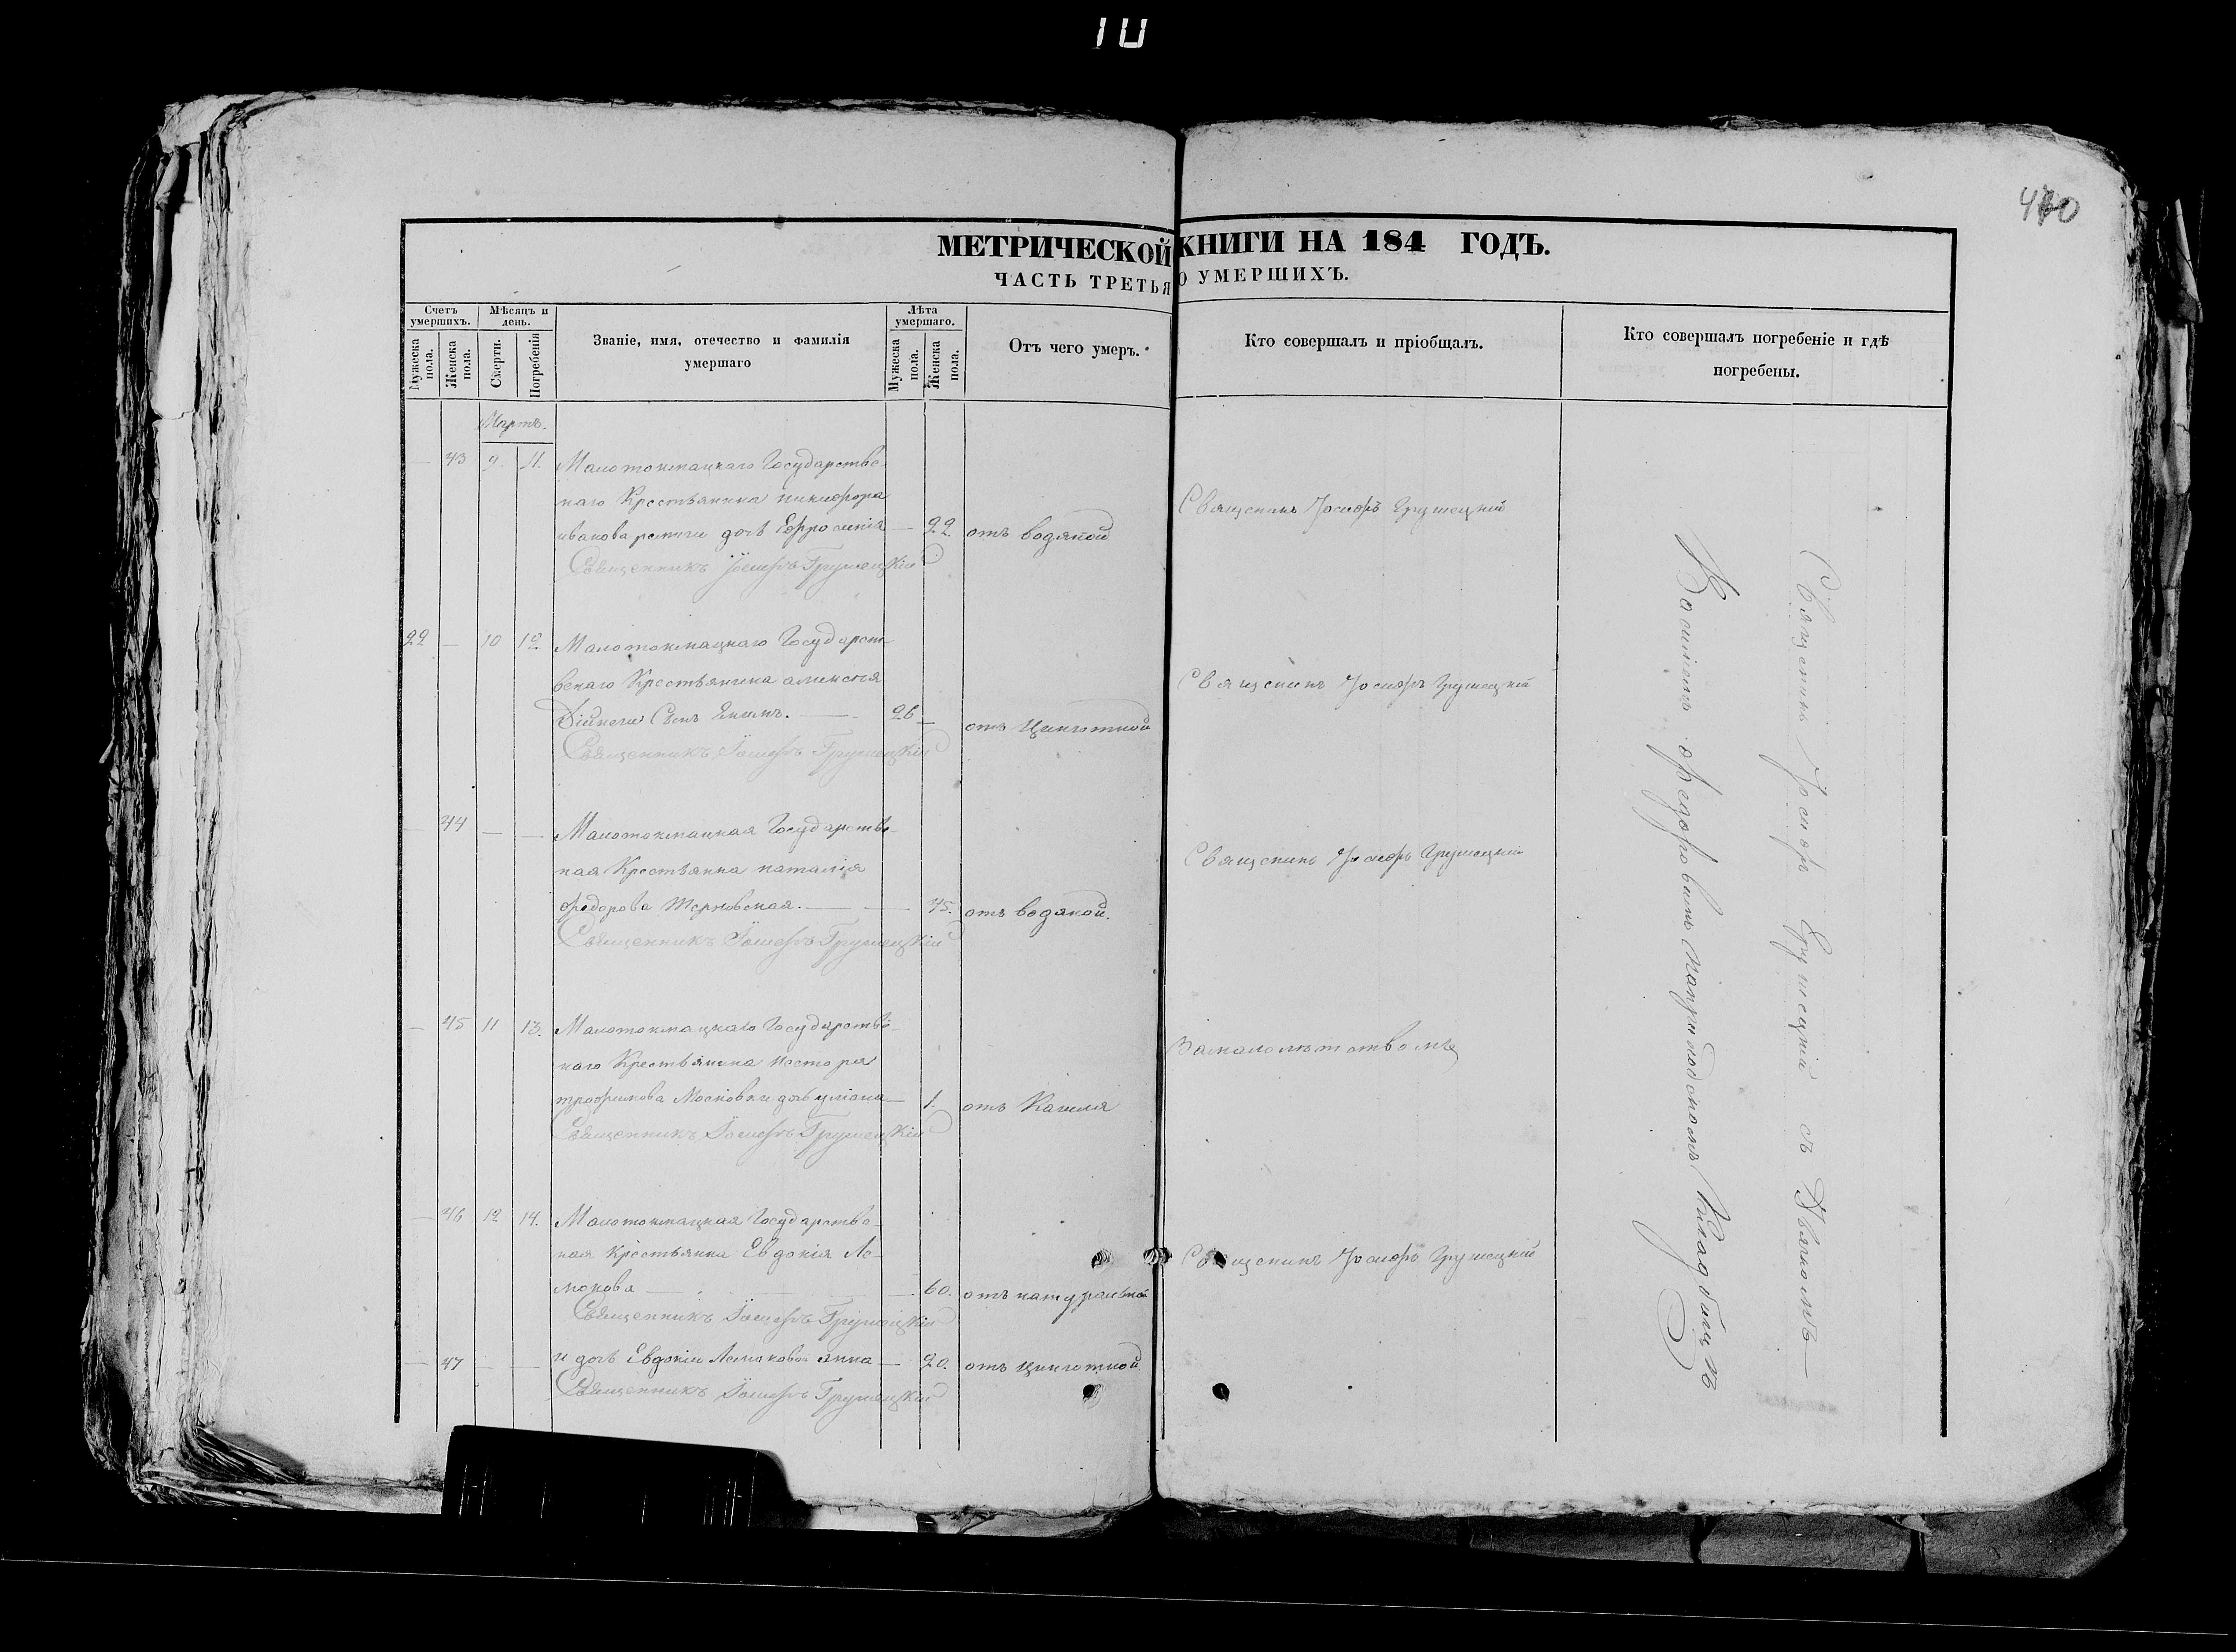 10
470
МЕТРИЧЕСКОЙ КНИГИ НА 184 ГОДЪ.
ЧАСТЬ ТРЕТЬЯ О УМЕРШИХЪ.
Счетъ умершихъ.
Мужеска пола.
Женска пола.
Мѣсяцъ и день.
Смерти.
Погребенія
Званіе, имя, отечество и фамилія
умершаго
Лѣта умершаго.
Мужеска пола.
Женска пола.
Отъ чего умеръ.
Кто совершалъ и пріобщалъ.
Кто совершалъ погребеніе и гдѣ
погребены.
Мартъ.
— 43 9. 11. Малотокмацкаго Государстве-
наго Крестьянина никифора
иванова дочь Ефросинія — 22. отъ водяной
Священникъ Іосифъ Грушецкій
Священикъ Іосифъ Грушецкій
22 — 10 12 Малотокмацкаго Государст-
венаго Крестьянина алексѣя
Сынъ — 26 — отъ Цынготной
Священникъ Іосифъ Грушецкій
Священикъ Іосифъ Грушецкій
— 44 — — Малотокмацкая Государстве-
ная Крестьянка наталія
федорова Терновская. — — 45. отъ водяной.
Священникъ Іосифъ Грушецкій
Священикъ Іосифъ Грушецкій
— 45 11 13. Малотокмацкаго Государстве-
наго Крестьянина Нестора
трофимова Московки дочь — 1. отъ Кашля
Священникъ Іосифъ Грушецкій
Замалолѣтствомъ
— 46 12 14. Малотокмацкая Государстве-
ная Крестьянка Евдокія Ле-
мокова — — 60. отъ натуральной
Священникъ Іосифъ Грушецкій
Священикъ Іосифъ Грушецкій
— 47 — — и дочь Евдокіи Лемоковой анна — 20. отъ цынготной
Священникъ Іосифъ Грушецкій
Священикъ Іосифъ Грушецкій съ Дьячкомъ —
Василіемъ федоровымъ наприходскомъ Кладбищѣ